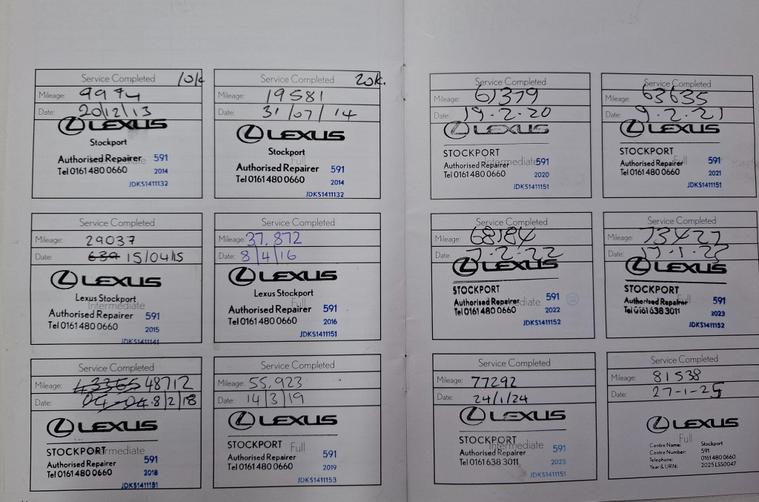 Service Completed 10k
Mileage: 9974
Date: 20/12/13
LEXUS
Stockport
Intermediate
Authorised Repairer 591
Tel 0161 480 0660 2014
JDKS1411132
Service Completed 20k.
Mileage: 19581
Date: 31/07/14
LEXUS
Stockport
Full
Authorised Repairer 591
Tel 0161 480 0660 2014
JDKS1411132
Service Completed
Mileage: 29037
Date: 15/04/15
LEXUS
Lexus Stockport
Intermediate
Authorised Repairer 591
Tel 0161 480 0660 2015
JDKS1411141
Service Completed
Mileage: 37,872
Date: 8/4/16
LEXUS
Lexus Stockport
Full
Authorised Repairer 591
Tel 0161 480 0660 2016
JDKS1411151
Service Completed
Mileage: 43365 48712
Date: 8/2/18
LEXUS
STOCKPORT
Intermediate
Authorised Repairer 591
Tel 0161 480 0660 2018
JDKS1411151
Service Completed
Mileage: 55,923
Date: 14/3/19
LEXUS
STOCKPORT
Full
Authorised Repairer 591
Tel 0161 480 0660 2019
JDKS1411153
Service Completed
Mileage: 61379
Date: 19-2-20
LEXUS
STOCKPORT
Intermediate
Authorised Repairer 591
Tel 0161 480 0660 2020
JDKS1411151
Service Completed
Mileage: 63635
Date: 9-2-21
LEXUS
STOCKPORT
Full
Authorised Repairer 591
Tel 0161 480 0660 2021
JDKS1411151
Service Completed
Mileage: 68184
Date: 7-2-22
LEXUS
STOCKPORT
Intermediate
Authorised Repairer 591
Tel 0161 480 0660 2022
JDKS1411152
Service Completed
Mileage: 73427
Date: 17-1-23
LEXUS
STOCKPORT
Full
Authorised Repairer 591
Tel 0161 638 3011 2023
JDKS1411152
Service Completed
Mileage: 77292
Date: 24/1/24
LEXUS
STOCKPORT
Intermediate
Authorised Repairer 591
Tel 0161 638 3011 2023
JDKS1411151
Service Completed
Mileage: 81538
Date: 27-1-25
LEXUS
Full
Centre Name: Stockport
Centre Number: 591
Telephone: 0161 480 0660
Year & URN: 2025 LSS0047